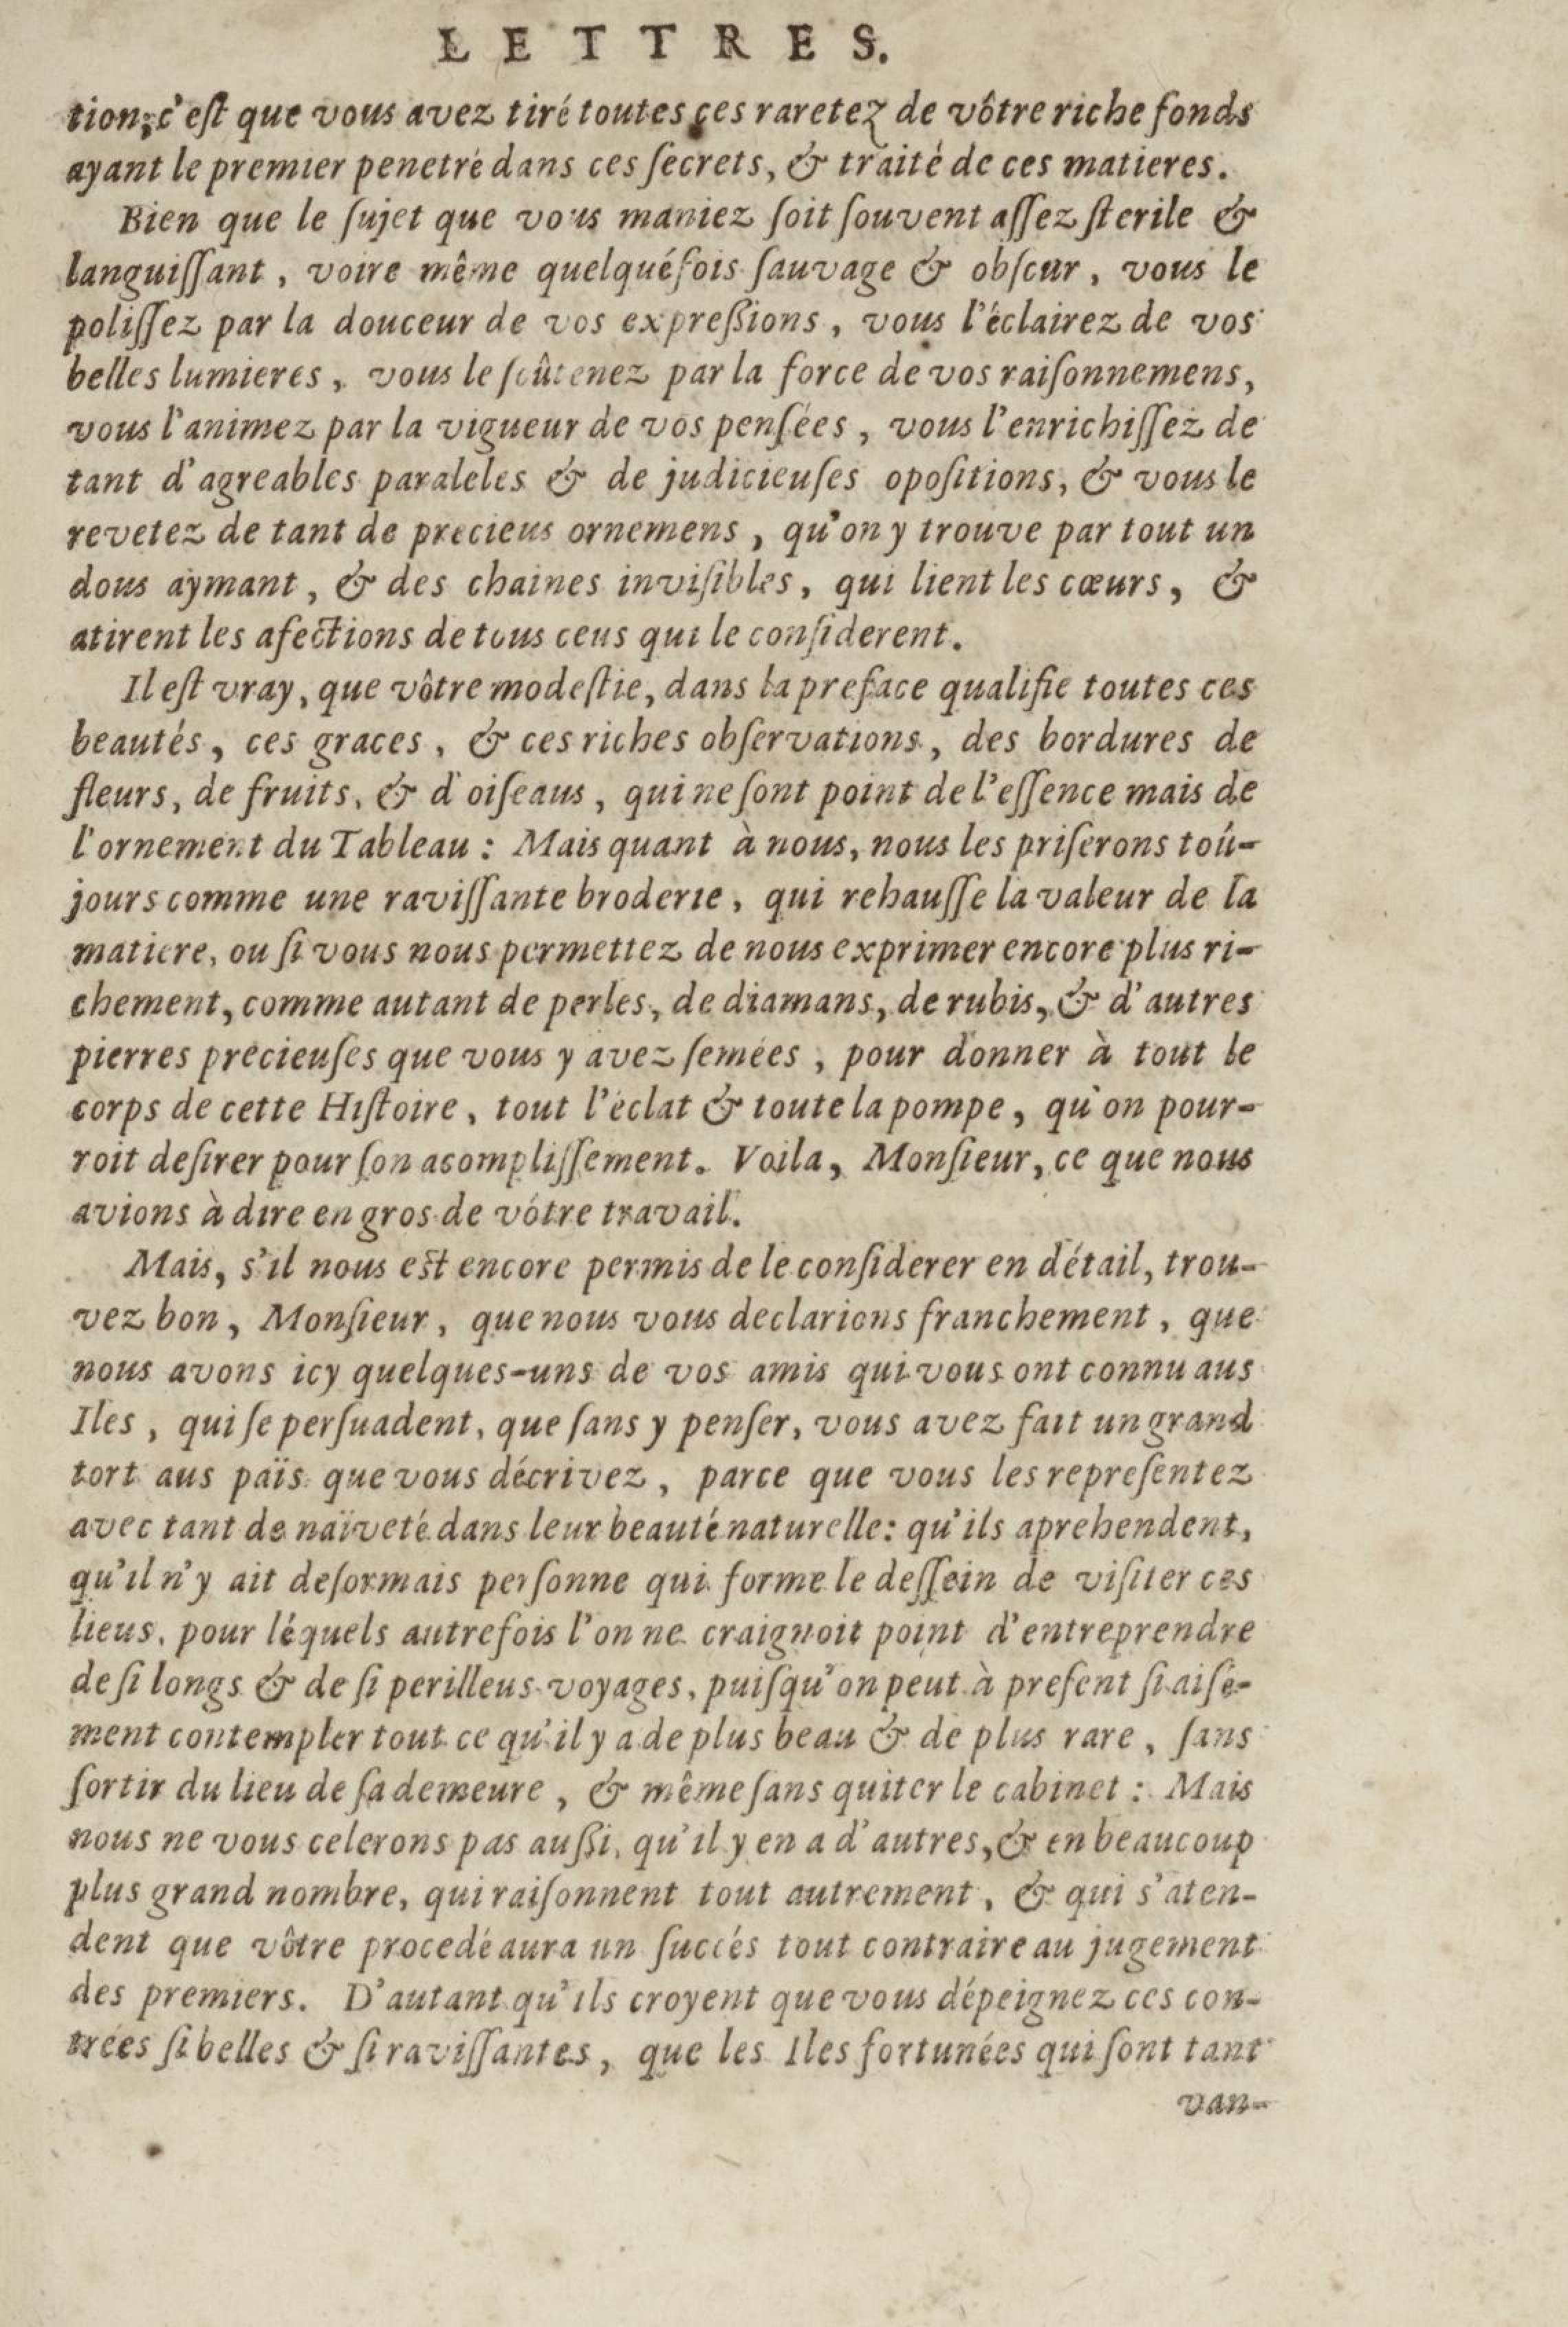 LETTRES.
tion; c'eſt que vous avez tiré toutes ces raretez de vôtre riche fonds
ayant le premier penetré dans ces ſecrets, & traité de ces matieres.
Bien que le ſujet que vous maniez ſoit ſouvent aſſez ſterile &
languiſſant, voire même quelquéfois ſauvage & obſcur, vous le
poliſſez par la douceur de vos expreßions, vous l'éclairez de vos
belles lumieres, vous le ſoûtenez par la force de vos raiſonnemens,
vous l'animez par la vigueur de vos penſées, vous l'enrichiſſez de
tant d'agreables paraleles & de judicieuſes opoſitions, & vous le
revetez de tant de precieus ornemens, qu'on y trouve par tout un
dous aymant, & des chaines inviſibles, qui lient les cœurs, &
atirent les afections de tous ceus qui le conſiderent.
Il eſt vray, que vôtre modeſtie, dans la preface qualifie toutes ces
beautés, ces graces, & ces riches obſervations, des bordures de
fleurs, de fruits, & d'oiſeaus, qui ne ſont point de l'eſſence mais de
l'ornement du Tableau: Mais quant à nous, nous les priſerons toû-
jours comme une raviſſante broderie, qui rehauſſe la valeur de la
matiere, ou ſi vous nous permettez de nous exprimer encore plus ri-
chement, comme autant de perles, de diamans, de rubis, & d'autres
pierres précieuſes que vous y avez ſemées, pour donner à tout le
corps de cette Hiſtoire, tout l'éclat & toute la pompe, qu'on pour-
roit deſirer pour ſon acompliſſement. Voila, Monſieur, ce que nous
avions à dire en gros de vótre travail.
Mais, s'il nous eſt encore permis de le conſiderer en détail, trou-
vez bon, Monſieur, que nous vous declarions franchement, que
nous avons icy quelques-uns de vos amis qui vous ont connu aus
Iles, qui ſe perſuadent, que ſans y penſer, vous avez fait un grand
tort aus païs que vous décrivez, parce que vous les repreſentez
avec tant de naïveté dans leur beauté naturelle: qu'ils aprehendent,
qu'il n'y ait deſormais perſonne qui forme le deſſein de viſiter ces
lieus, pour léquels autrefois l'on ne craignoit point d'entreprendre
de ſi longs & de ſi perilleus voyages, puiſqu'on peut à preſent ſi aiſé-
ment contempler tout ce qu'il y a de plus beau & de plus rare, ſans
ſortir du lieu de ſa demeure, & même ſans quiter le cabinet: Mais
nous ne vous celerons pas außi, qu'il y en a d'autres, & en beaucoup
plus grand nombre, qui raiſonnent tout autrement, & qui s'aten-
dent que vôtre procedé aura un ſuccés tout contraire au jugement
des premiers. D'autant qu'ils croyent que vous dépeignez ces con-
trées ſi belles & ſi raviſſantes, que les Iles fortunées qui ſont tant
van-